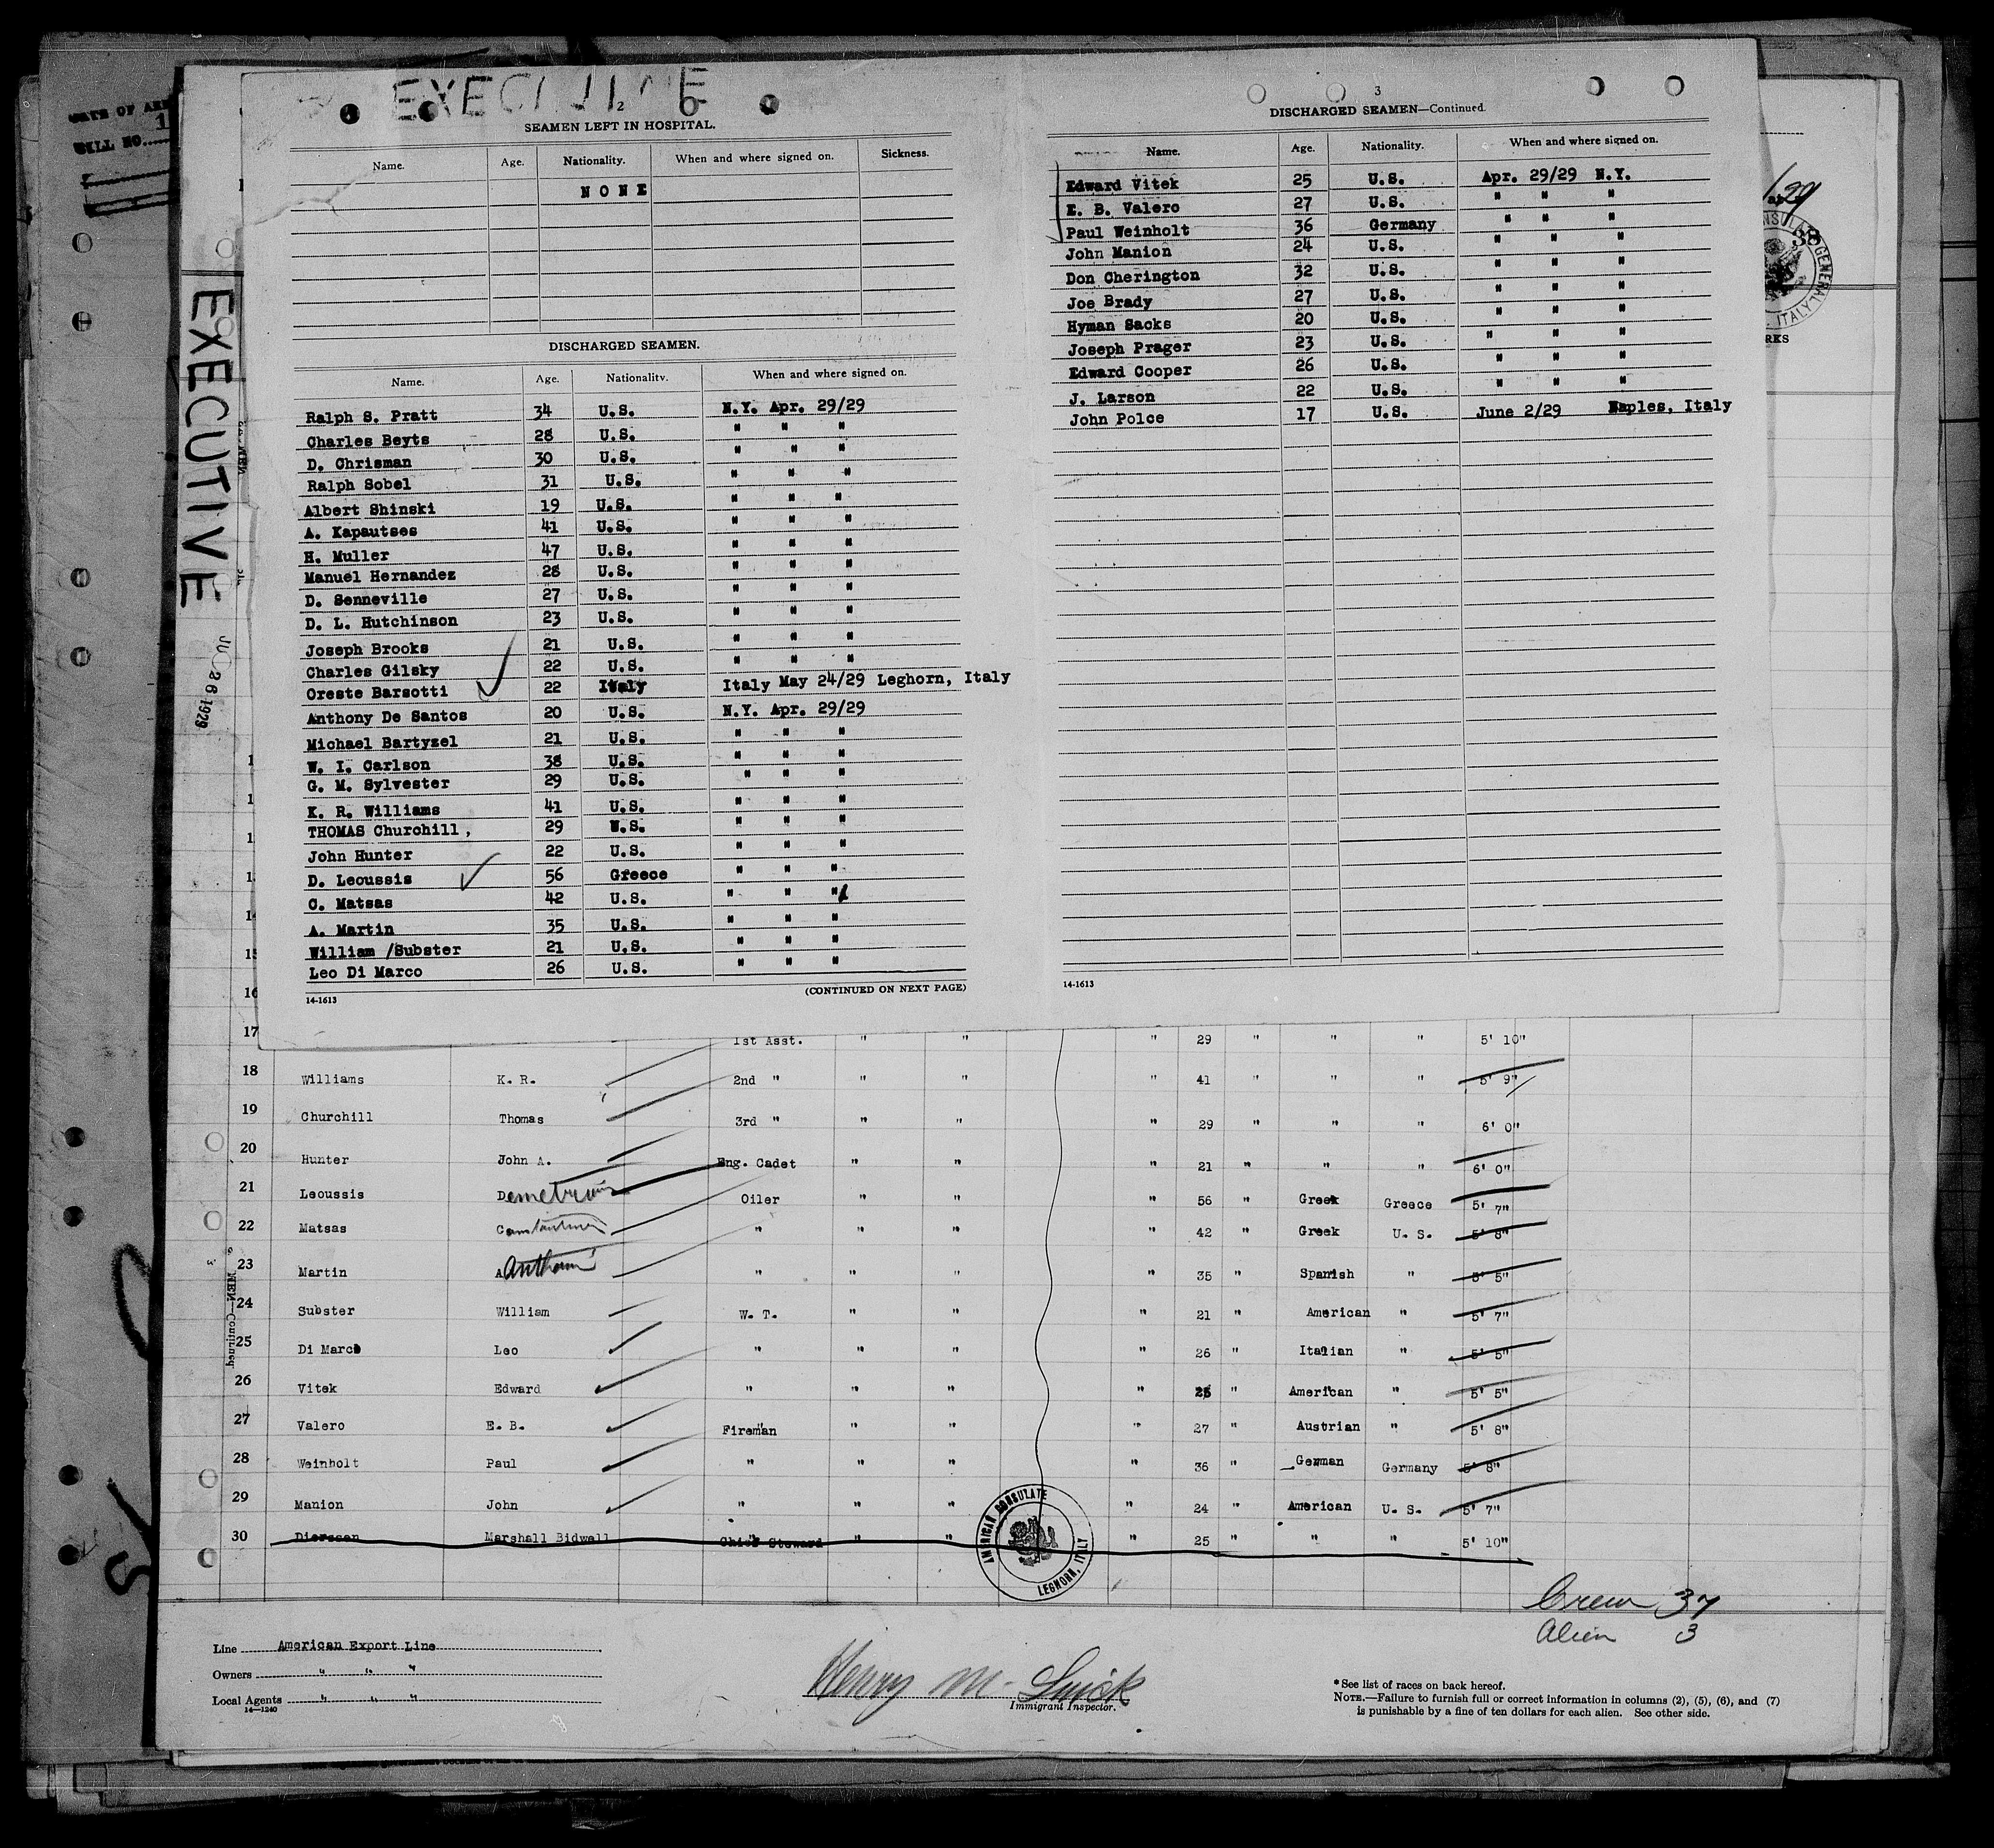 EXECUTIVE
2
SEAMEN LEFT IN HOSPITAL.
Name. Age. Nationality. When and where signed on. Sickness.
NONE
DISCHARGED SEAMEN.
Name. Age. Nationality. When and where signed on.
Ralph S. Pratt 34 U.S. N.Y. Apr. 29/29
Charles Beyts 28 U.S. " " "
D. Chrisman 30 U.S. " " "
Ralph Sobel 31 U.S. " " "
Albert Shinski 19 U.S. " " "
A. Kapautses 41 U.S. " " "
H. Muller 47 U.S. " " "
Manuel Hernandez 28 U.S. " " "
D. Senneville 27 U.S. " " "
D. L. Hutchinson 23 U.S. " " "
Joseph Brooks 21 U.S. " " "
Charles Gilsky 22 U.S. " " "
Oreste Barsotti 22 Italy Italy May 24/29 Leghorn, Italy
Anthony De Santos 20 U.S. N.Y. Apr. 29/29
Michael Bartyzel 21 U.S. " " "
W. I. Carlson 38 U.S. " " "
G. M. Sylvester 29 U.S. " " "
K. R. Williams 41 U.S. " " "
THOMAS Churchill, 29 U.S. " " "
John Hunter 22 U.S. " " "
D. Leoussis 56 Greece " " "
C. Matsas 42 U.S. " " "
A. Martin 35 U.S. " " "
William /Subster 21 U.S. " " "
Leo Di Marco 26 U.S. " " "
14-1613 (CONTINUED ON NEXT PAGE)
3
DISCHARGED SEAMEN—Continued.
Name. Age. Nationality. When and where signed on.
Edward Vitek 25 U.S. Apr. 29/29 N.Y.
E. B. Valero 27 U.S. " " "
Paul Weinholt 36 Germany " " "
John Manion 24 U.S. " " "
Don Cherington 32 U.S. " " "
Joe Brady 27 U.S. " " "
Hyman Sacks 20 U.S. " " "
Joseph Prager 23 U.S. " " "
Edward Cooper 26 U.S. " " "
J. Larson 22 U.S. " " "
John Polce 17 U.S. June 2/29 Naples, Italy
14-1613
EXECUTIVE
26 1929
17 1st Asst. " " " 29 " " " 5' 10"
18 Williams K. R. 2nd " " " " 41 " " " 5' 9"
19 Churchill Thomas 3rd " " " " 29 " " " 6' 0"
20 Hunter John A. Eng. Cadet " " " 21 " " " 6' 0"
21 Leoussis Demetrius Oiler " " " 56 " Greek Greece 5' 7"
22 Matsas Constantine " " " " 42 " Greek U. S. 5' 8"
23 Martin A " " " " 35 " Spanish " 5' 5"
24 Subster William W. T. " " " 21 " American " 5' 7"
25 Di Marco Leo " " " " 26 " Italian " 5' 5"
26 Vitek Edward " " " " 25 " American " 5' 5"
27 Valero E. B. Fireman " " " 27 " Austrian " 5' 8"
28 Weinholt Paul " " " " 36 " German Germany 5' 8"
29 Manion John " " " " 24 " American U. S. 5' 7"
30 Dierssen Marshall Bidwell Chief Steward " " " 25 " " " 5' 10"
AMERICAN CONSULATE
LEGHORN, ITALY
Crew 37
Alien 3
Line American Export Line
Owners " " "
Local Agents " " "
14—1240
Henry M.
Immigrant Inspector.
* See list of races on back hereof.
NOTE.—Failure to furnish full or correct information in columns (2), (5), (6), and (7)
is punishable by a fine of ten dollars for each alien. See other side.